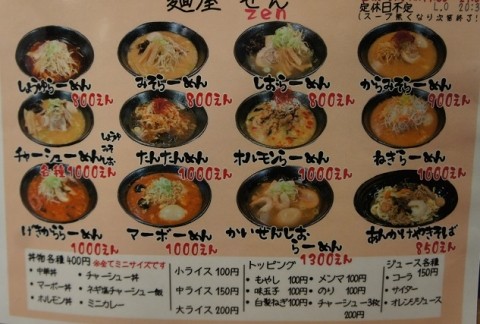 麺屋 ぜん
zen
定休日不定 L.O 20:3
(スープ無くなり次第終了!
しょうゆらーめん
800えん
みそらーめん
800えん
しおらーめん
800えん
からみそらーめん
900えん
チャーシューめん
しょうゆ
みそ
しお
各種1000えん
たんたんめん
1000えん
ホルモンらーめん
1000えん
ねぎらーめん
1000えん
げきかららーめん
1000えん
マーボーめん
1000えん
かいせんしおらーめん
1300えん
あんかけやきそば
850えん
丼物各種400円 ※全てミニサイズです
・中華丼 ・チャーシュー丼
・マーボー丼 ・ネギ塩チャーシュー飯
・ホルモン丼 ・ミニカレー
小ライス 100円
中ライス 150円
大ライス 200円
トッピング
・もやし 100円 ・メンマ 100円
・味玉子 100円 ・のり 100円
・白髪ねぎ100円 ・チャーシュー3枚
200円
ジュース各種
150円
・コーラ
・サイダー
・オレンジジュース